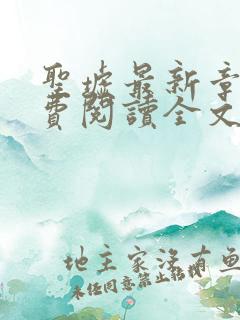 聖墟最新章
費閱讀全文
地主家沒有魚
未經同意禁止轉載